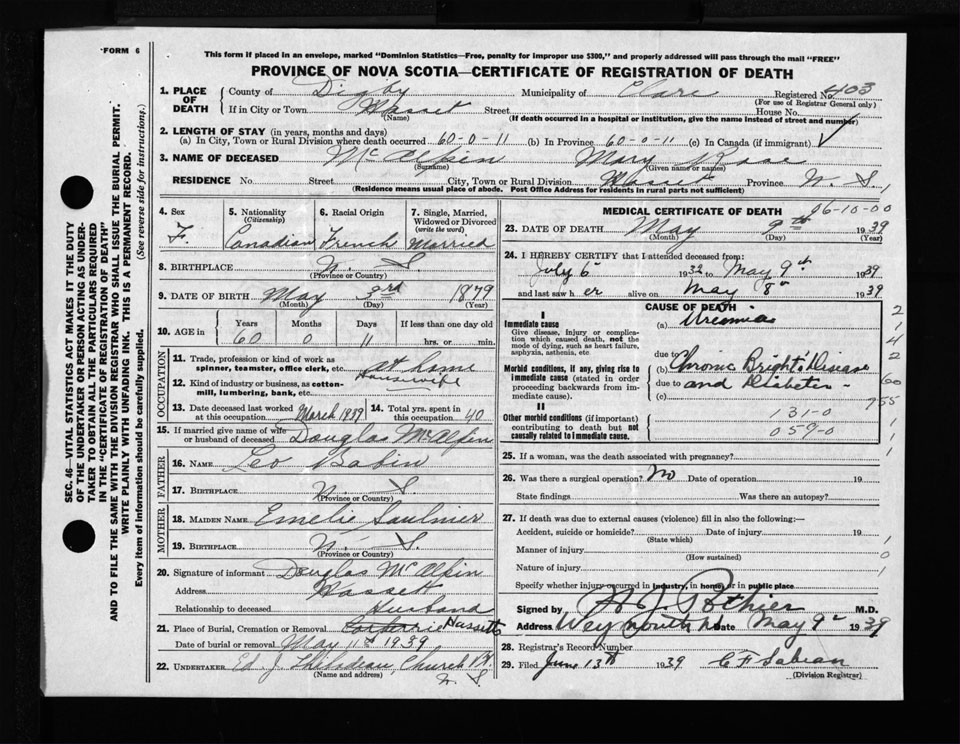 FORM 6
This form if placed in an envelope, marked "Dominion Statistics—Free, penalty for improper use $300," and properly addressed will pass through the mail "FREE"
PROVINCE OF NOVA SCOTIA—CERTIFICATE OF REGISTRATION OF DEATH
1. PLACE OF DEATH County of Digby Municipality of Clare Registered No. 403
(For use of Registrar General only)
If in City or Town Hasset Street House No.
(Name) (If death occurred in a hospital or institution, give the name instead of street and number)
2. LENGTH OF STAY (in years, months and days)
(a) In City, Town or Rural Division where death occurred 60-0-11 (b) In Province 60-0-11 (c) In Canada (if immigrant) ✓
3. NAME OF DECEASED McAlpin Mary Rose
(Surname) (Given name or names)
RESIDENCE No. Street City, Town or Rural Division Hasset Province N. S.
(Residence means usual place of abode. Post Office Address for residents in rural parts not sufficient)
4. Sex F.
5. Nationality (Citizenship) Canadian
6. Racial Origin French
7. Single, Married, Widowed or Divorced (write the word) Married
8. BIRTHPLACE N. S.
(Province or Country)
9. DATE OF BIRTH May 3rd 1879
(Month) (Day) (Year)
10. AGE in Years 60 Months 0 Days 11 If less than one day old hrs. or min.
OCCUPATION
11. Trade, profession or kind of work as spinner, teamster, office clerk, etc. at home
Housewife
12. Kind of industry or business, as cotton-mill, lumbering, bank, etc.
13. Date deceased last worked at this occupation March 1939 14. Total yrs. spent in this occupation 40
15. If married give name of wife or husband of deceased Douglas McAlpin
FATHER
16. NAME Leo Babin
17. BIRTHPLACE N. S.
(Province or Country)
MOTHER
18. MAIDEN NAME Emelie Saulnier
19. BIRTHPLACE N. S.
(Province or Country)
20. Signature of informant Douglas McAlpin
Address Hassett
Relationship to deceased Husband
21. Place of Burial, Cremation or Removal Corberrie Hassetts
Date of burial or removal May 11th 1939
22. UNDERTAKER Ed. J. Church Pt.
(Name and address) N. S.
MEDICAL CERTIFICATE OF DEATH 06-10-00
23. DATE OF DEATH May 9th 1939
(Month) (Day) (Year)
24. I HEREBY CERTIFY that I attended deceased from:
July 6 1932 to May 9th 1939
and last saw her alive on May 8th 1939
CAUSE OF DEATH
I
Immediate cause (a) Uremia
Give disease, injury or complication which caused death, not the mode of dying, such as heart failure, asphyxia, asthenia, etc.
due to
(b) Chronic Bright's Disease
Morbid conditions, if any, giving rise to immediate cause (stated in order proceeding backwards from immediate cause).
due to and Diabetes -
(c)
II
Other morbid conditions (if important) contributing to death but not causally related to immediate cause.
131-0
059-0
25. If a woman, was the death associated with pregnancy?
26. Was there a surgical operation? No Date of operation 19
State findings Was there an autopsy?
27. If death was due to external causes (violence) fill in also the following:—
Accident, suicide or homicide? Date of injury 19
(State which)
Manner of injury
(How sustained)
Nature of injury
Specify whether injury occurred in industry, in home or in public place
Signed by H J Pothier M.D.
Address Weymouth N Date May 9th 1939
28. Registrar's Record Number
29. Filed June 13th 1939 C F Sabean
(Division Registrar)
SEC. 46—VITAL STATISTICS ACT MAKES IT THE DUTY
OF THE UNDERTAKER OR PERSON ACTING AS UNDERTAKER TO OBTAIN ALL THE PARTICULARS REQUIRED
IN THE "CERTIFICATE OF REGISTRATION OF DEATH"
AND TO FILE THE SAME WITH THE DIVISION REGISTRAR WHO SHALL ISSUE THE BURIAL PERMIT.
WRITE PLAINLY WITH UNFADING INK. THIS IS A PERMANENT RECORD.
Every item of information should be carefully supplied. (See reverse side for instructions.)